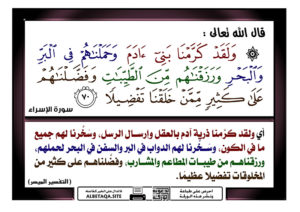 قال الله تعالى :
۞ وَلَقَدْ كَرَّمْنَا بَنِىٓ ءَادَمَ وَحَمَلْنَٰهُمْ فِى ٱلْبَرِّ
وَٱلْبَحْرِ وَرَزَقْنَٰهُم مِّنَ ٱلطَّيِّبَٰتِ وَفَضَّلْنَٰهُمْ
عَلَىٰ كَثِيرٍ مِّمَّنْ خَلَقْنَا تَفْضِيلًا ٧٠
سورة الإسراء
أي ولقد كرَّمنا ذرية آدم بالعقل وإرسال الرسل، وسخَّرنا لهم جميع
ما في الكون، وسخَّرنا لهم الدواب في البر والسفن في البحر لحملهم،
ورزقناهم من طيبات المطاعم والمشارب، وفضَّلناهم على كثير من
المخلوقات تفضيلا عظيمًا.
(التفسير الميسر)
ALBETAQA.SITE